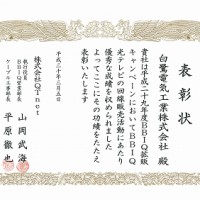 表彰状
白鷺電気工業株式会社 殿
貴社は平成二十九年度BBIQ拡販
キャンペーンにおいてBBIQ
光テレビの回線販売活動にあたり
優秀な成績を収められました
よってここにその功績をたたえ
表彰いたします
平成三十年三月五日
株式会社QTnet
執行役員
BBIQ営業部長
山岡武海
ケーブル工事部長
平原徹也